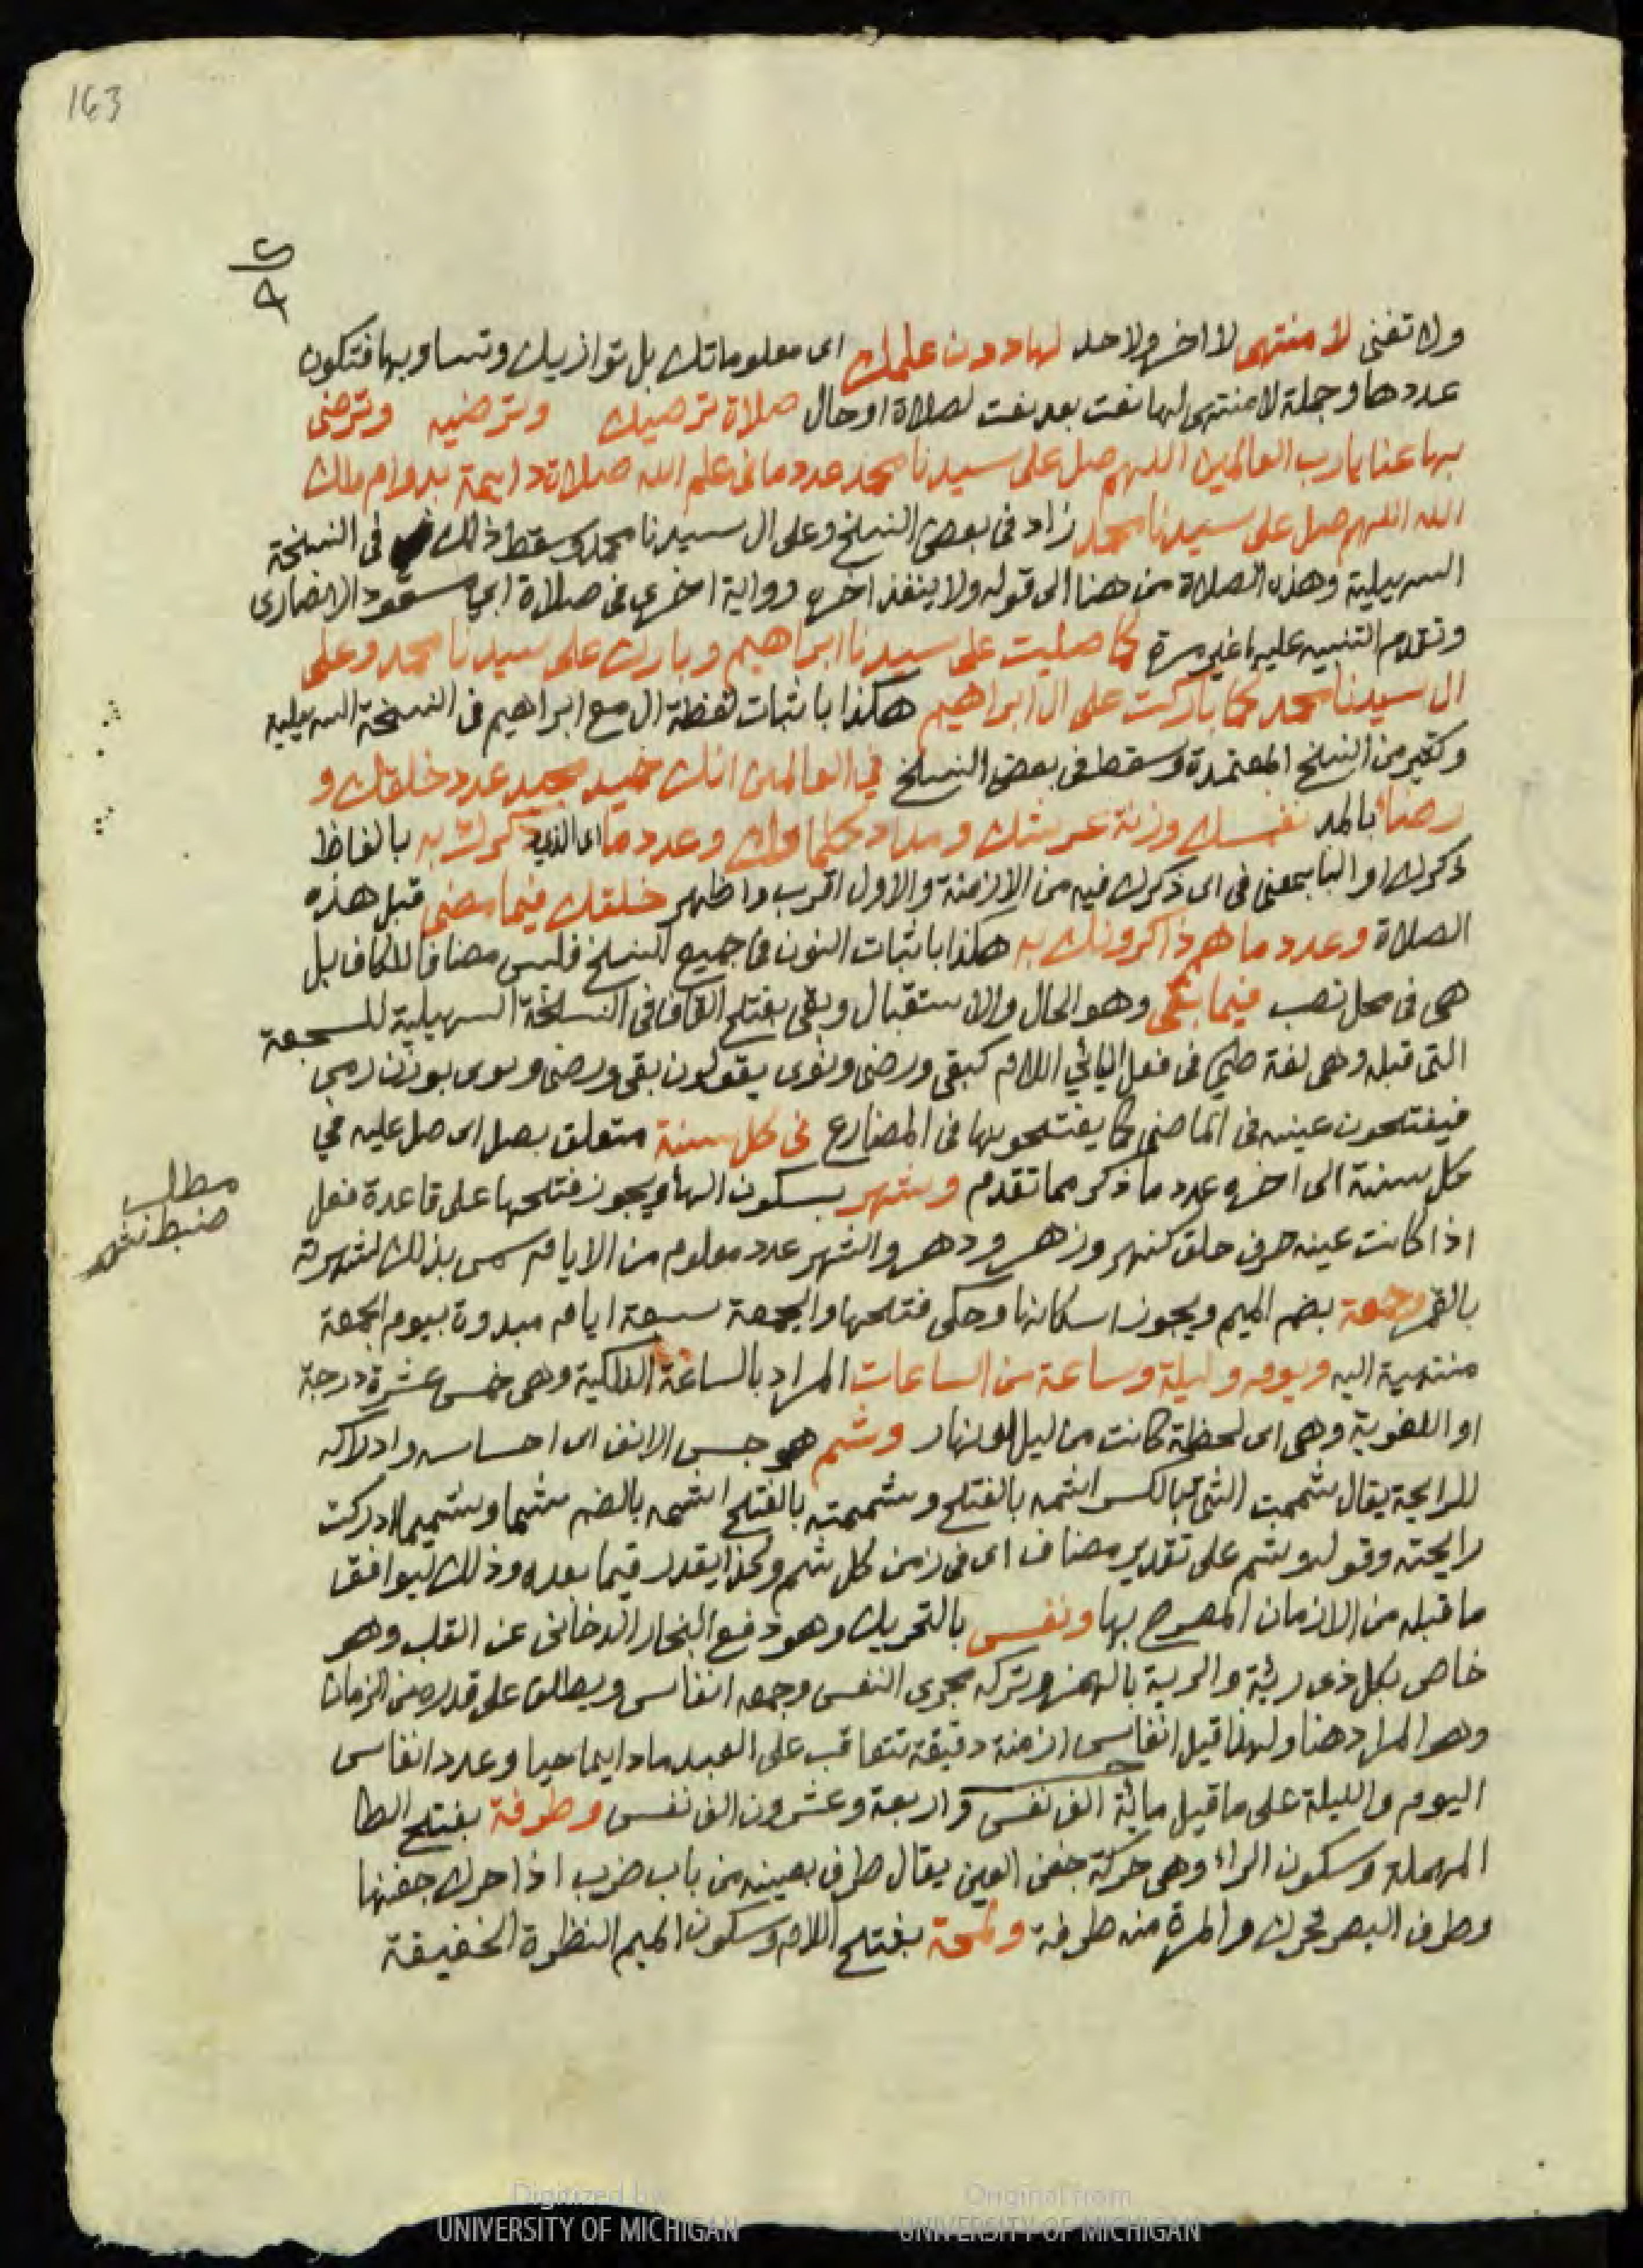 163
ولا تفنى لا منتهى لا اخر ولا حد لها دون علمك اى معلوماتك بل توازيك وتساويها فتكون
عددها وجملة لا منتهى لها نعت بعد نعت لصلاة او حال صلاة ترضيك وترضيه وترضى
بها عنا يا رب العالمين اللهم صل على سيدنا محمد عدد ما فى علم الله صلاة دايمة بدوام ملك
الله اللهم صل على سيدنا محمد زاد فى بعض النسخ وعلى ال سيدنا محمد وسقط ذلك فى النسخة
السهيلية وهذه الصلاة من هنا الى قوله ولا ينفد اخره رواية اخرى فى صلاة ابي مسعود الانصارى
وتقدم التنبيه عليها غير مرة كما صليت على سيدنا ابراهيم وبارك على سيدنا محمد وعلى
ال سيدنا محمد كما باركت على ال ابراهيم هكذا باثبات لفظة ال مع ابراهيم فى النسخة السهيلية
وكثير من النسخ المعتمدة وسقط فى بعض النسخ في العالمين انك حميد مجيد عدد خلقك و
رضا بالمد نفسك وزنة عرشك ومداد كلماتك وعدد ما اى الذي ذكرك به بالفاظ
ذكرك او البا بمعنى فى اى ذكرك فيه من الازمنة والاول اقرب واظهر خلقك فيما مضى قبل هذه
الصلاة وعدد ما هم ذاكرونك به هكذا باثبات النون فى جميع النسخ فليس مضافا للكاف بل
هى فى محل نصب فيما بقى وهو الحال والاستقبال وبقى بفتح القاف فى النسخة السهيلية للسجعة
التى قبله وهى لغة طيئ فى فعل اليائي اللام كبقى ورضى ونوى يقولون بقى ورضى ونوى بوزن رمى
فيفتحون عينه فى الماضى كما يفتحونها فى المضارع فى كل سنة متعلق بصل اى صل عليه في
كل سنة الى اخره عدد ما ذكر مما تقدم وشهر بسكون الهاء ويجوز فتحها على قاعدة فعل
اذا كانت عينه حرف حلق كنهر وزهر ودهر والشهر عدد معلوم من الايام سمى بذلك لشهرته
بالقمر وجمعة بضم الميم ويجوز اسكانها وحكى فتحها والجمعة سبعة ايام مبدوة بيوم الجمعة
منتهية اليه ويوم وليلة وساعة من الساعات المراد بالساعة الفلكية وهى خمس عشرة درجة
او اللغوية وهى اى لحظة كانت من ليل او نهار وشم هو حس الانف اى احساسه وادراكه
للرايحة يقال شممت الشئ بالكسر اشمه بالفتح وشممته بالفتح اشمه بالضم شما وشميما ادركت
رايحته وقوله وشم على تقدير مضاف اى فى زمن كل شم وكذا يقدر فيما بعده وذلك ليوافق
ما قبله من الازمان المصرح بها ونفس بالتحريك وهو دفع البخار الدخانى عن القلب وهو
خاص بكل ذى رئة والرية بالهمز وتركه مجرى النفس وجمعه انفاس ويطلق على قدر من الزمان
وهو المراد هنا ولهذا قيل انفاس ازمنة دقيقة تتعاقب على العبد ما دايما حيا وعدد انفاس
اليوم والليلة على ما قيل ماية الف نفس واربعة وعشرون الف نفس وطرفة بفتح الطا
المهملة وسكون الراء وهى حركة جفن العين يقال طرف بعينه من باب ضرب اذا حرك جفنها
وطرف البصر تحرك والمرة منه طرفة ولمحة بفتح اللام وسكون الميم النظرة الخفيفة
مطلب
ضبط شهر
Digitized by
UNIVERSITY OF MICHIGAN
Original from
UNIVERSITY OF MICHIGAN